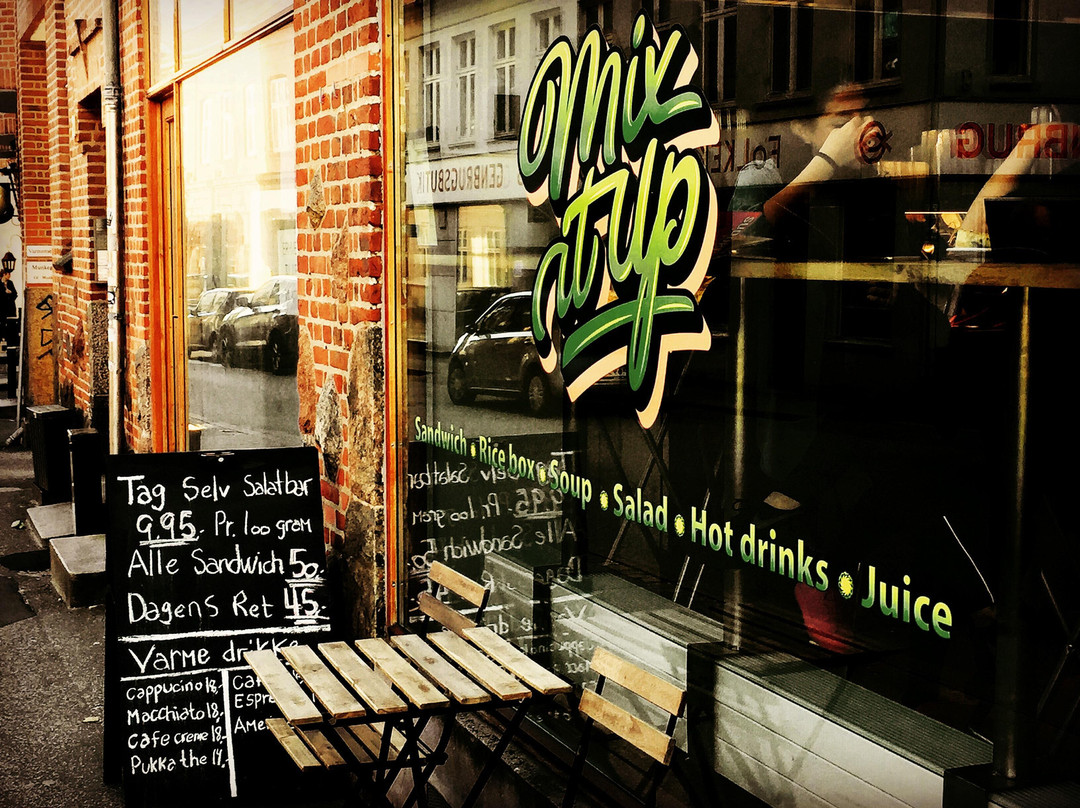 Mix
it Up
Sandwich • Rice box • Soup • Salad • Hot drinks • Juice
GENBRUGSBUTIK
Tag Selv Salatbar
9.95,- Pr. 100 gram
Alle Sandwich 50,-
Dagens Ret 45,-
Varme drikke
Cappucino 18,-
Macchiato 18,-
Cafe creme 18,-
Pukka the 14,-
Espre
Ame